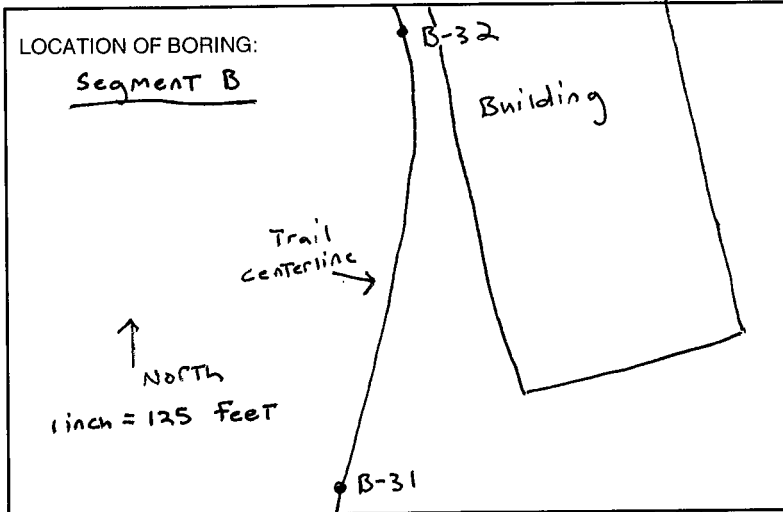 LOCATION OF BORING:
Segment B
B-32
Building
Trail
centerline
North
1 inch = 125 feet
B-31